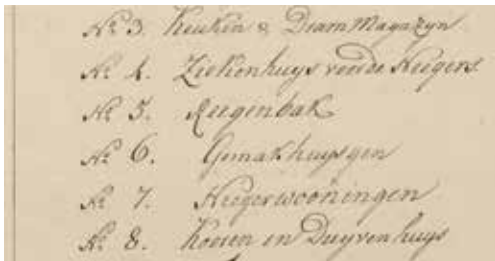 No 3. Keuken & Dram Magazyn
No 4. Ziekenhuys voor de Neegers.
No 5. Reegenbak
No 6. Gemakhuysgen
No 7. Neegerwooningen
No 8. Koeien en Duyvenhuys